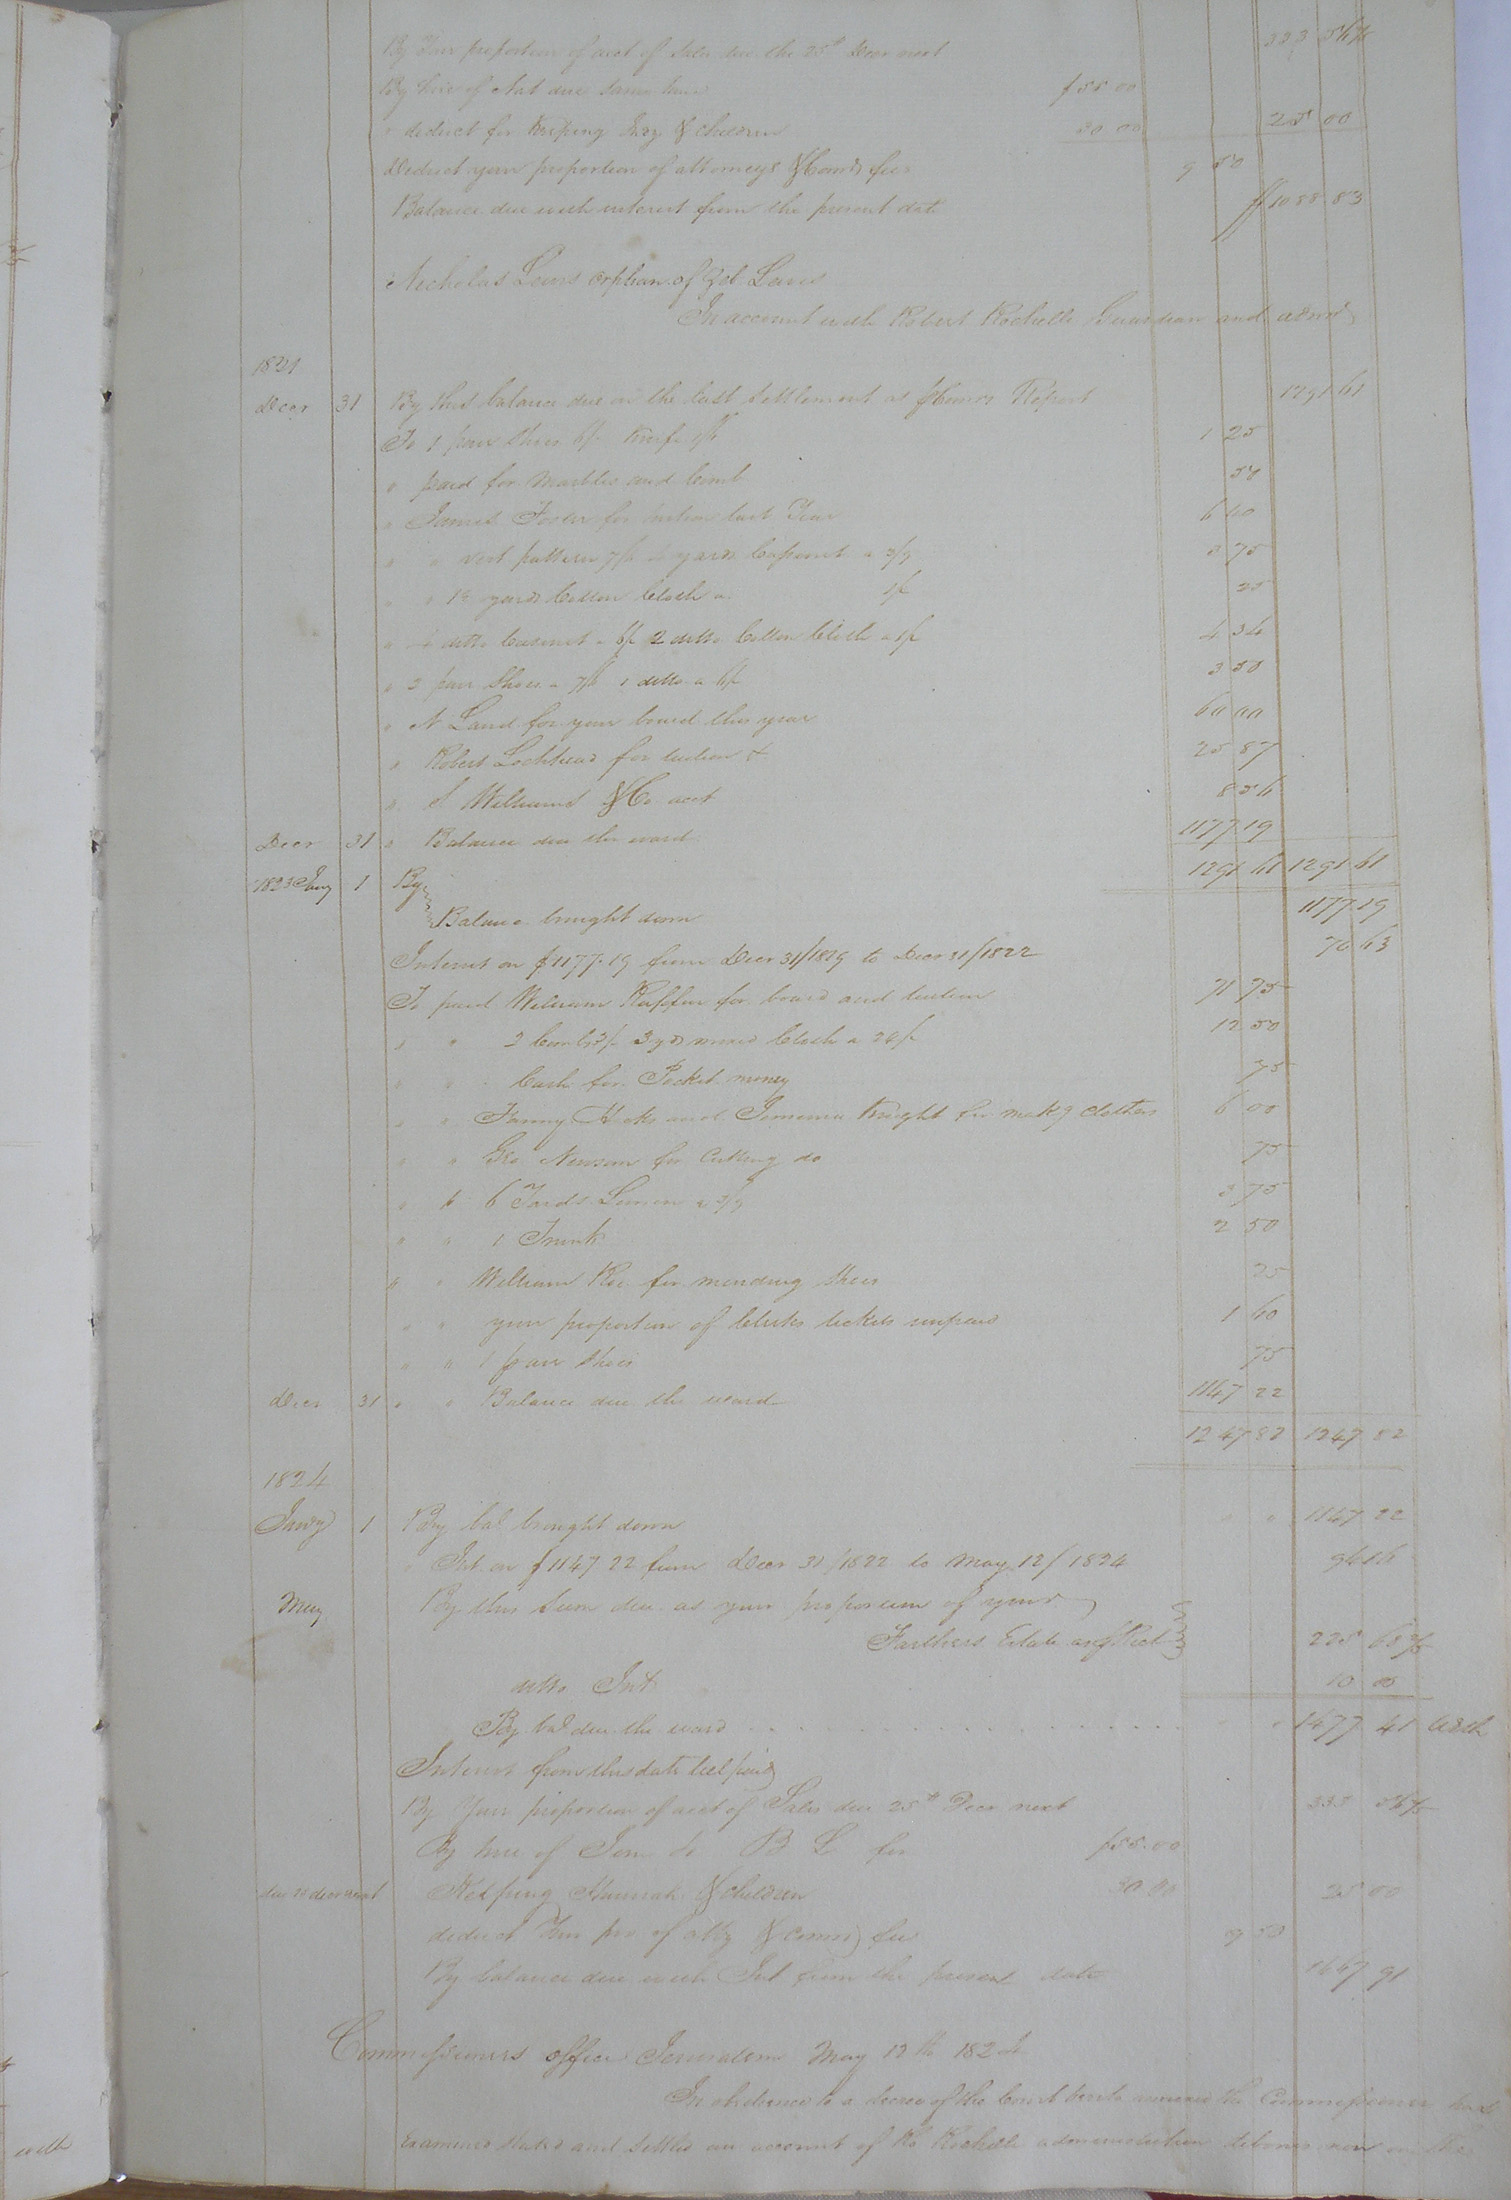 By Your proportion of acct of Sales due the 25th Decr next
By hire of Nat due same time $55 00
" deduct for keeping & children 30 00 25 00
Deduct your proportion of attorneys & Comrs fees 9 50
Balance due with interest from the present date $1088 83
Nicholas Lewis orphan of Zeb Lewis
In account with Robert Rochelle Guardian and admr
1821
Decr 31 By this balance due on the last Settlement as Comrs Report 1291 61
To 1 pair Shoes 6/- Knife 1/6 1 25
" paid for Marbles and Comb 50
" James Foster for tuition last Year 6 40
" " vest pattern 7/6 yards a 3/9 3 75
" " 1½ yards Cotton Cloth a 1/ 25
" ditto a 6/ 2 ditto Cotton Cloth a 1/ 4 34
" 2 pair Shoes a 7/6 1 ditto a 6/ 3 50
" N Land for your board this year 60 00
" Robert Lochhead for tuition & 25 87
" J Williams & Co acct 8 56
Decr 31 " Balance due the ward 1177 19
1291 61 1291 61
1823 Jany 1 By
Balance brought down 1177 19
Interest on $1177.19 from Decr 31/1819 to Decr 31/1822 70 63
To paid William for board and tuition 71 75
" " 2 Combs 3/ 3 yds mixed Cloth a 24/ 12 50
" " Cash for Pocket money 75
" " Fanny Hicks and Jemima Knight for makg clothes 6 00
" " Geo Newsom for Cutting do 75
" " 6 Yards Linnen a 3/9 3 75
" " 1 Trunk 2 50
" " William for mending Shoes 25
" " your proportion of Clerks tickets unpaid 1 60
" " 1 pair Shoes 75
Decr 31 " " Balance due the ward 1147 22
1247 82 1247 82
1824
Jany 1 By bal brought down " " 1147 22
Int on $1147 22 from Decr 31/1822 to May 12/1824 94
May By this Sum due as your proportion of your
Farthers Estate 225
ditto Int 10 00
By bal due the ward " " 1477 41
Interest from this date till paid
By Your proportion of acct of Sales due 25th Decr next 333
By hire of do B L for $55.00
due 25 decr next Keeping Hannah & children 30 00 25 00
deduct Your pro of atty & comrs fee 9 50
By balance due with Int from the present date 91
Commissioners office Jerusalem May 12th 1824
In obedience to a decree of the Court hereto annexed the Commissioner has
Examined stated and settled an account of Ro Rochelle administration debonis non on the
with